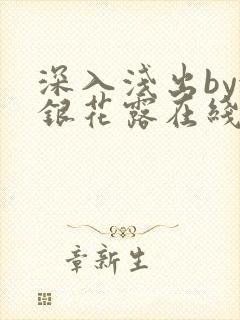 深入浅出by
銀花露在綫
章新生